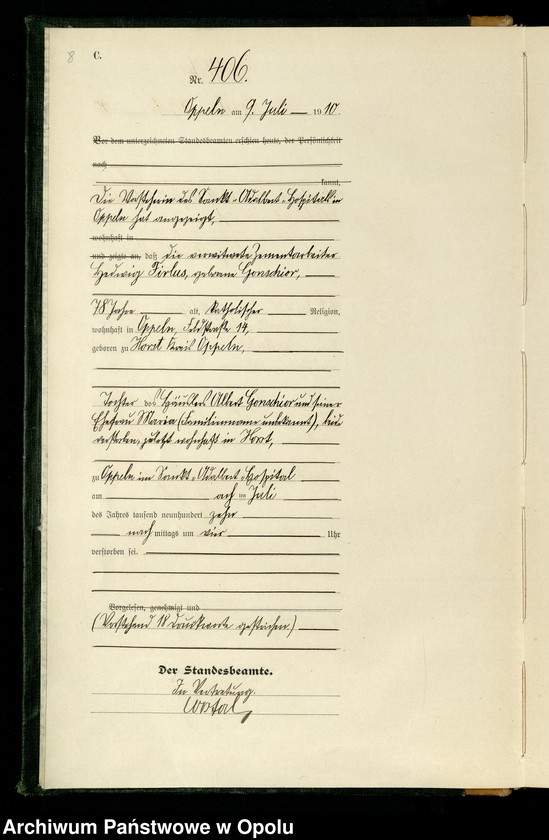 8
C.
Nr. 406.
Oppeln am 9. Juli 1910.
Vor dem unterzeichneten Standesbeamten erschien heute, der Persönlichkeit
nach
kannt,
Die Vorsteherin des Sankt-Adalbert-Hospitals in
Oppeln hat angezeigt,
wohnhaft in
und zeigte an, daß die verwitwete Zementarbeiter
Hedwig Firlus, geborene Gonschior,
78 Jahre alt, katholischer Religion,
wohnhaft in Oppeln, Feldstraße 14,
geboren zu Horst Kreis Oppeln,
Tochter des Häuslers Albert Gonschior und seiner
Ehefrau Maria (Familienname unbekannt), beide
verstorben, zuletzt wohnhaft in Horst,
zu Oppeln im Sankt-Adalbert-Hospital
am acht ten Juli
des Jahres tausend neunhundert zehn
nachmittags um vier Uhr
verstorben sei.
Vorgelesen, genehmigt und
(Vorstehend 18 Druckworte gestrichen.)
Der Standesbeamte.
In Vertretung.
Archiwum Państwowe w Opolu